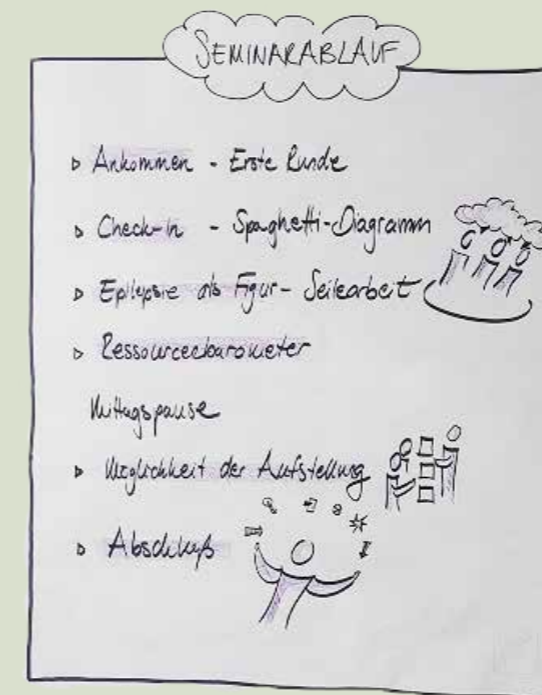 SEMINARABLAUF
▷ Ankommen - Erste Runde
▷ Check-In - Spaghetti-Diagramm
▷ Epilepsie als Figur - Seilearbeit
▷ Ressourcenbarometer
Mittagspause
▷ Möglichkeit der Aufstellung
▷ Abschluß